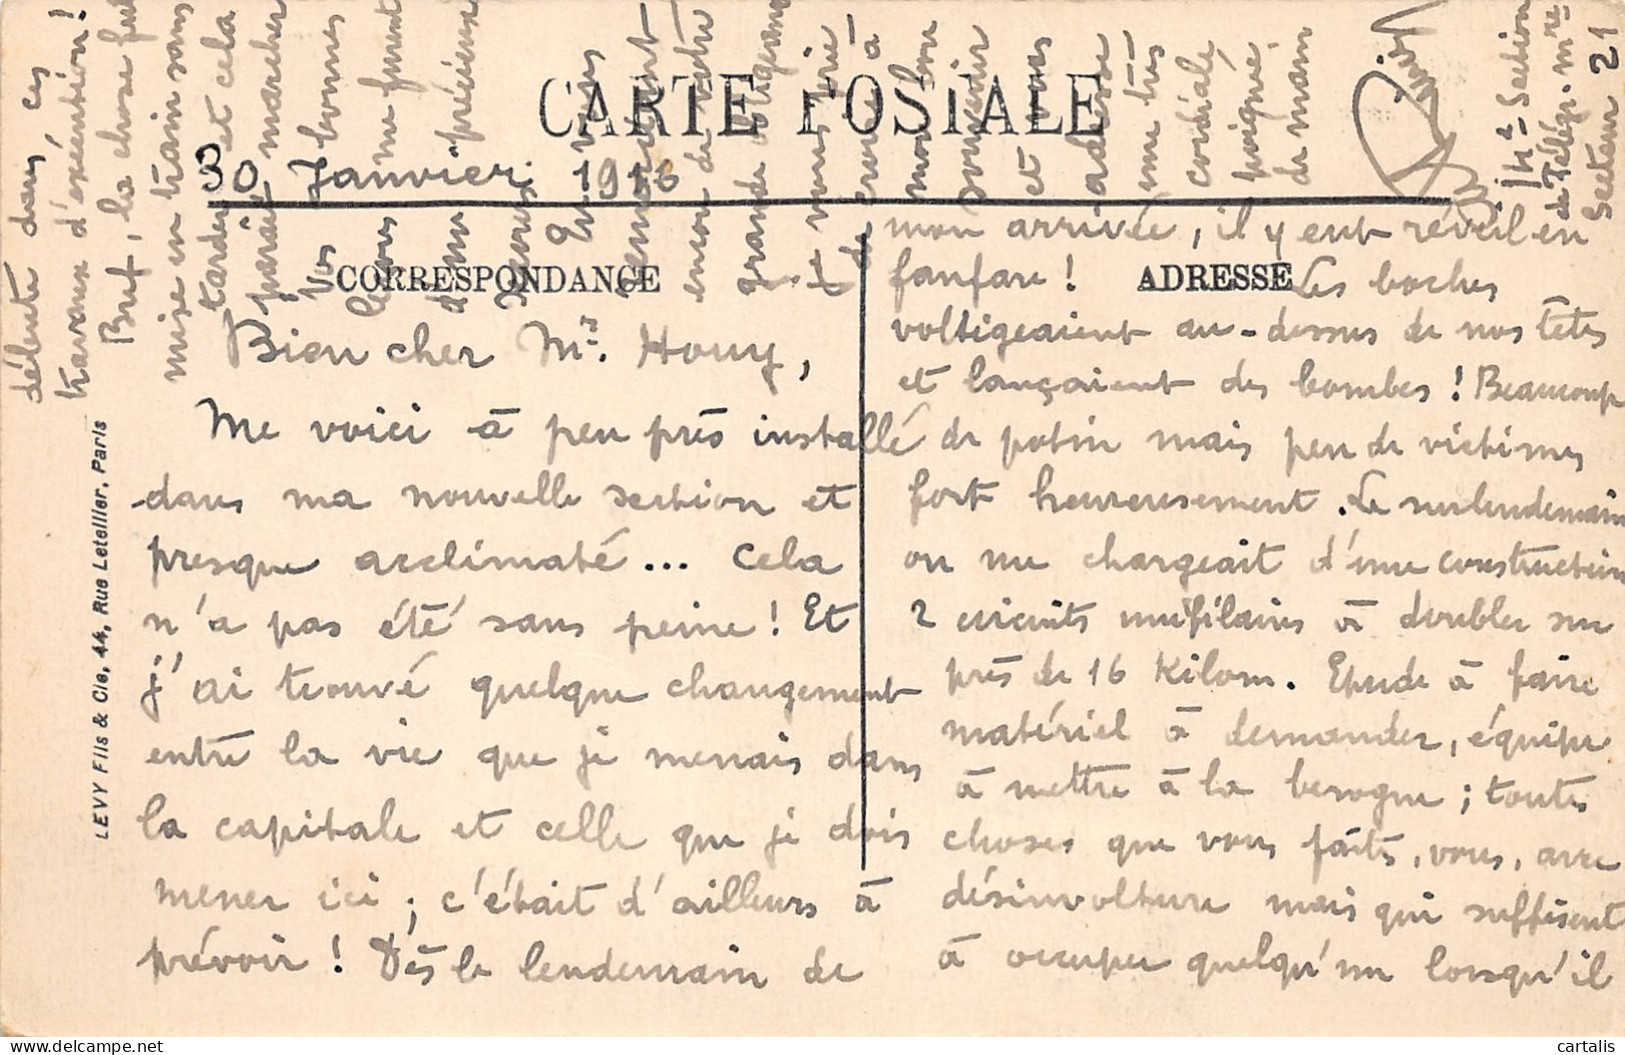 CARTE POSTALE
30 Janvier 1916
CORRESPONDANCE
ADRESSE
Bien cher Mr. Houy,
Me voici à peu près installé
dans ma nouvelle section et
presque acclimaté... Cela
n'a pas été sans peine! Et
j'ai trouvé quelque changement
entre la vie que je menais dans
la capitale et celle que je dois
mener ici; c'était d'ailleurs à
prévoir! Dès le lendemain de
mon arrivée, il y eut réveil en
fanfare! Les boches
voltigeaient au-dessus de nos têtes
et lançaient des bombes! Beaucoup
de potin mais peu de victimes
fort heureusement. Le surlendemain
on me chargeait d'une construction
2 circuits unifilaires à doubler sur
près de 16 Kilom. Etude à faire
matériel à demander, équipe
à mettre à la besogne; toutes
choses que vous faites, vous, avec
désinvolture mais qui suffisent
à occuper quelqu'un lorsqu'il
débute dans ces
travaux d'exécution!
Bref, la chose fut
mise en train sans
tarder et cela
paraît marcher
Vos bonnes
leçons me furent
d'un précieux
secours
En vous
remerciant
encore de votre
grande obligeance
je vous prie
de croire à
mon bon
souvenir
et vous
adresse
une très
cordiale
poignée
de main
de Télégr. mre
Secteur 21
LEVY Fils & Cie, 44, Rue Letellier, Paris
cartalis